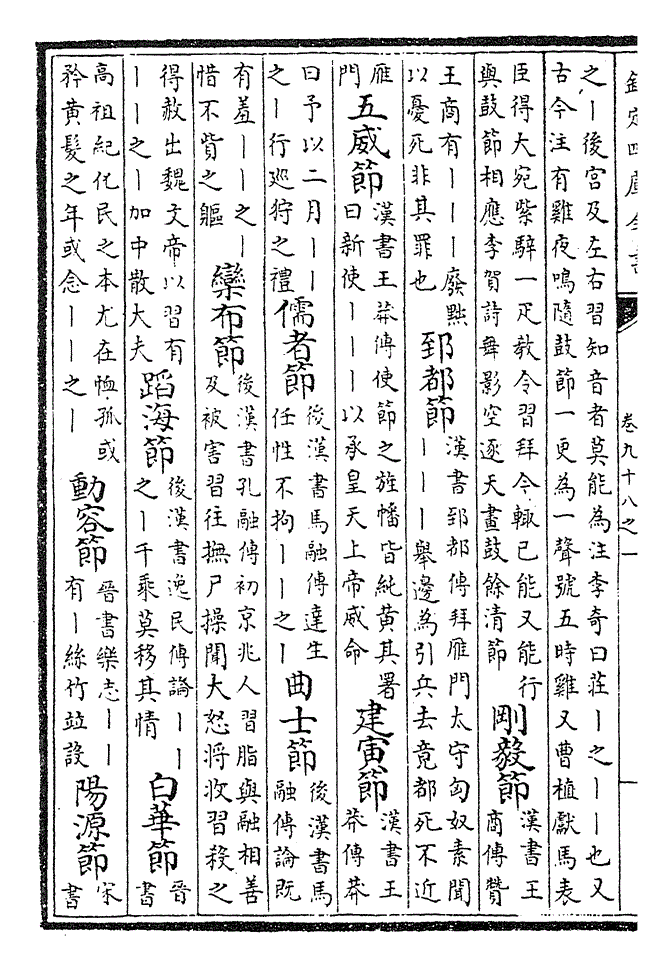 欽定四庫全書
卷九十八之一
之丨後宫及左右習知音者莫能為注李奇曰莊丨之丨丨也又
古今注有雞夜鳴隨鼓節一更為一聲號五時雞又曹植獻馬表
臣得大宛紫騂一疋教令習拜今輒已能又能行
與鼓節相應李賀詩舞影空逐天畫鼓餘清節
剛毅節
漢書王
商傳贊
王商有丨丨丨廢黜
以憂死非其罪也
郅都節
漢書郅都傳拜雁門太守匈奴素聞
丨丨丨舉邊為引兵去竟都死不近
雁
門
五威節
漢書王莽傳使節之旄幡皆純黄其署
曰新使丨丨丨以承皇天上帝威命
建寅節
漢書王
莽傳莽
曰予以二月丨丨
之丨行廵狩之禮
儒者節
後漢書馬融傳達生
任性不拘丨丨之丨
曲士節
後漢書馬
融傳論既
有羞丨丨之丨
惜不貲之軀
欒布節
後漢書孔融傳初京兆人習脂與融相善
及被害習往撫尸操聞大怒將收習殺之
得赦出魏文帝以習有
丨丨之丨加中散大夫
蹈海節
後漢書逸民傳論丨丨
之丨千乘莫移其情
白華節
晉
書
高祖紀化民之本尤在恤孤或
矜黄髮之年或念丨丨之丨
動容節
晉書樂志丨丨
有丨絲竹竝設
陽源節
宋
書